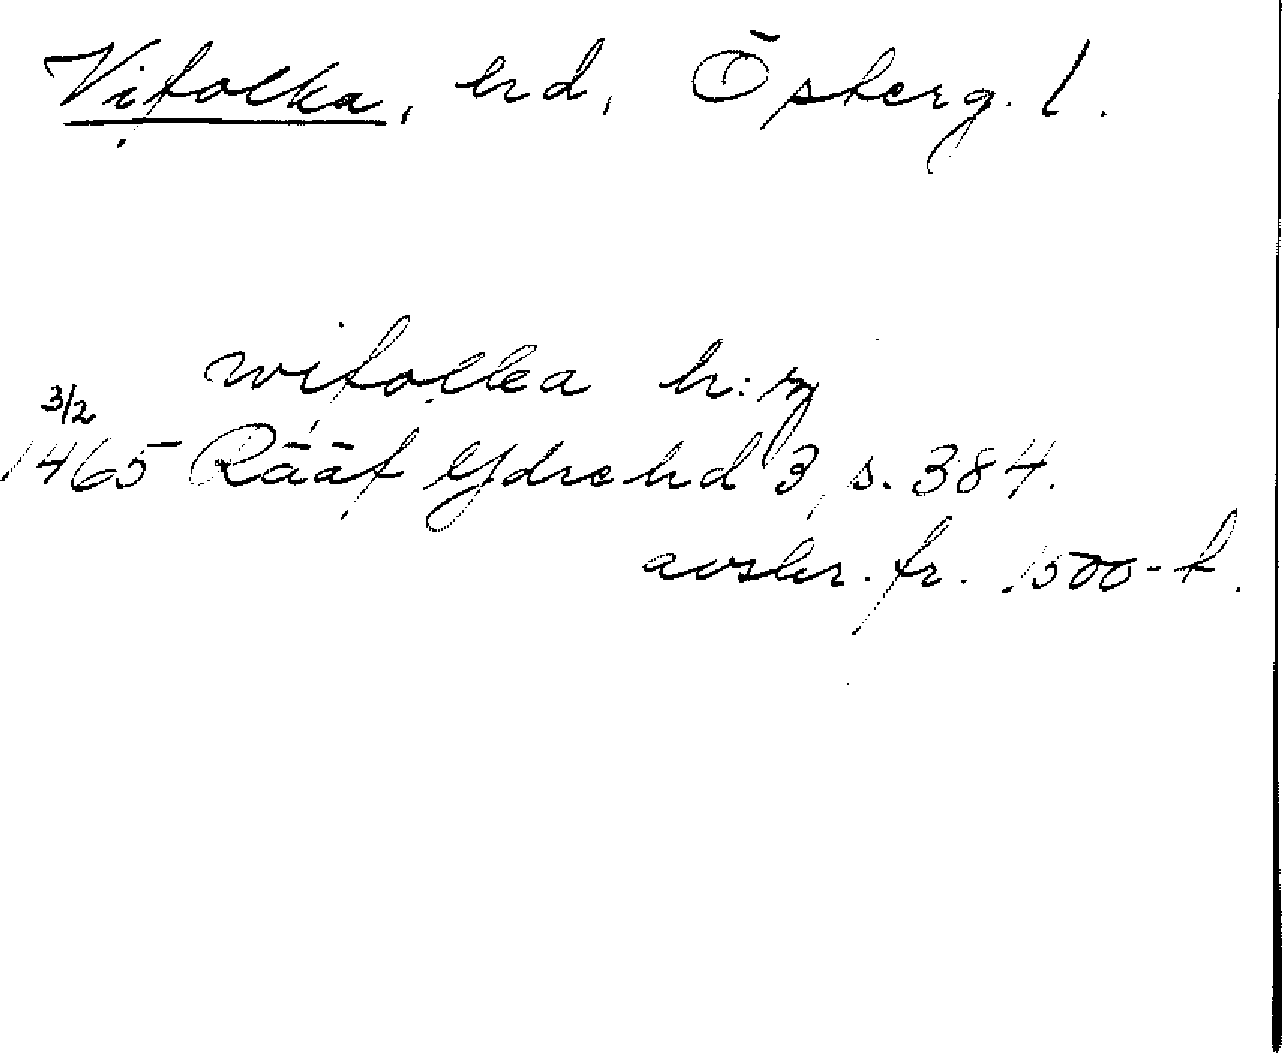 Vifolka, hd, Österg. l.
wifolka h:z
3/2
1465 Rääf Ydre hd 3, s. 384.
avskr. fr. 1500-t.